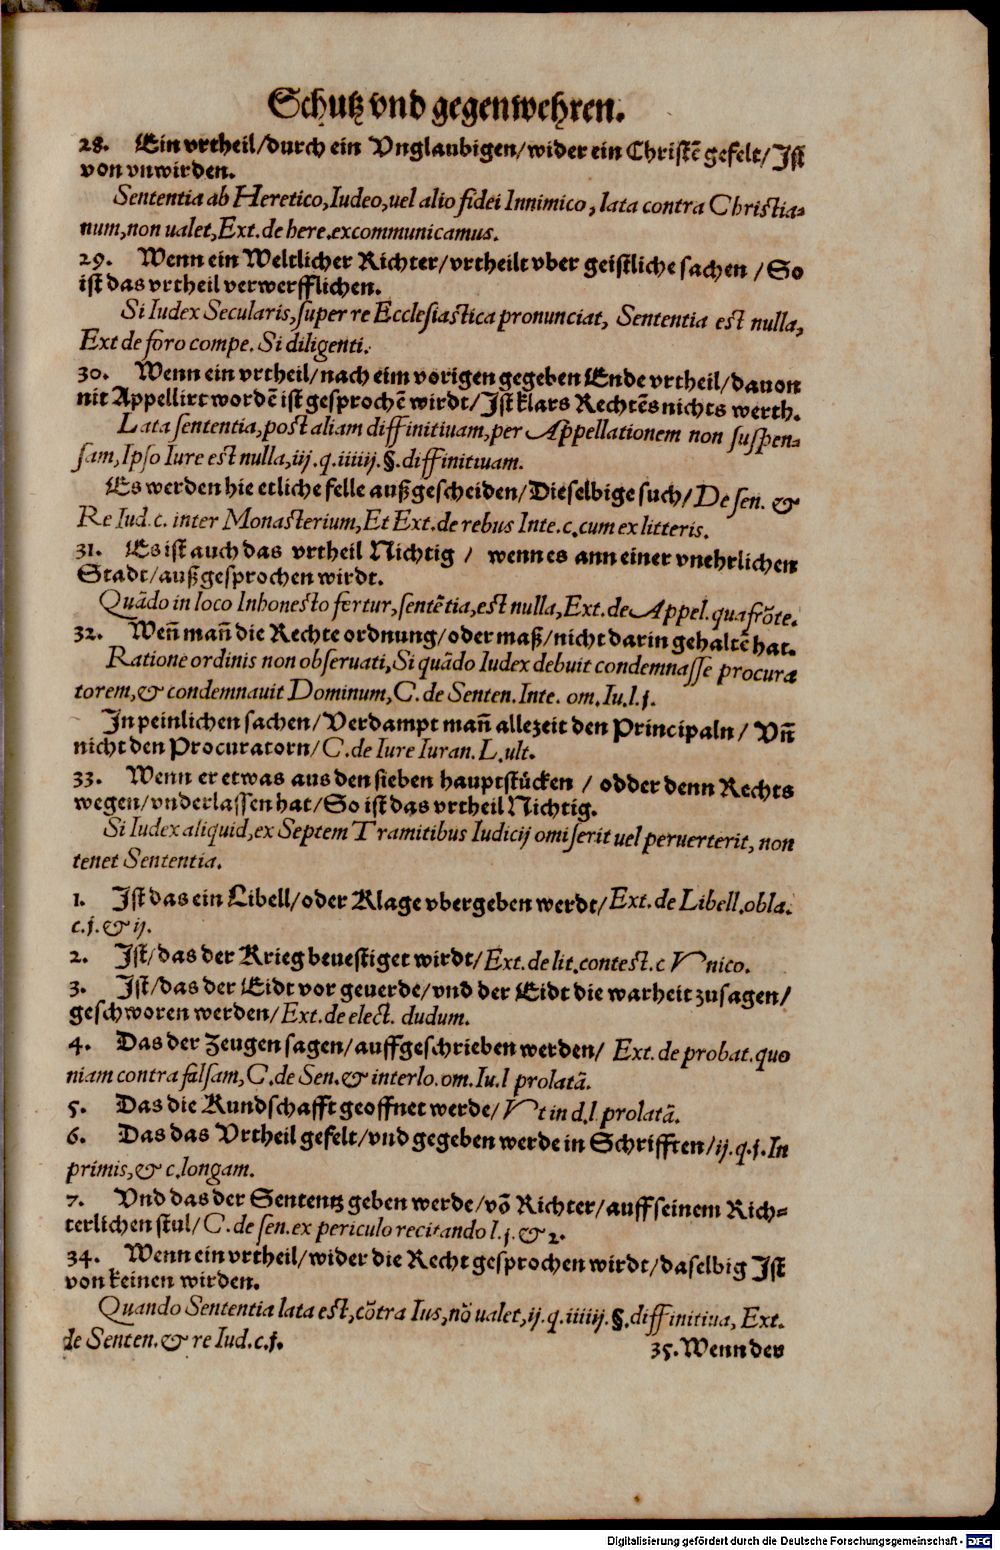 Schutz vnd gegenwehren.
28. Ein vrtheil/durch ein Vnglaubigen/wider ein Christē gefelt/Ist
von vnwirden.
Sententia ab Heretico,Iudeo,uel alio fidei Innimico, lata contra Christia-
num,non ualet,Ext.de here.excommunicamus.
29. Wenn ein Weltlicher Richter/vrtheilt vber geistliche sachen /So
ist das vrtheil verwerfflichen.
Si Iudex Secularis,super re Ecclesiastica pronunciat, Sententia est nulla,
Ext de foro compe. Si diligenti.
30. Wenn ein vrtheil/nach eim vorigen gegeben Ende vrtheil/dauon
nit Appellirt wordē ist gesprochē wirdt/Ist klars Rechtēs nichts werth.
Lata sententia,post aliam diffinitiuam,per Appellationem non suspen-
sam,Ipso Iure est nulla,iij.q.iiiiij.§.diffinitiuam.
Es werden hie etliche felle außgescheiden/Dieselbige such/De sen. &
Re Iud.c. inter Monasterium,Et Ext.de rebus Inte.c.cum ex litteris.
31. Es ist auch das vrtheil Nichtig / wenn es ann einer vnehrlichen
Stadt/außgesprochen wirdt.
Quādo in loco Inhonesto fertur,sentētia,est nulla,Ext.de Appel.qua frōte.
32. Weñ mañ die Rechte ordnung/oder maß/nicht darin gehaltē hat.
Ratione ordinis non obseruati,Si quādo Iudex debuit condemnasse procura
torem,& condemnauit Dominum,C.de Senten.Inte. om.Iu.l.j.
In peinlichen sachen/Verdampt mañ allezeit den Principaln/ Vñ
nicht den Procuratorn/C.de Iure Iuran.L.ult.
33. Wenn er etwas aus den sieben hauptstücken / odder denn Rechts
wegen/vnderlassen hat/So ist das vrtheil Nichtig.
Si Iudex aliquid,ex Septem Tramitibus Iudicij omiserit uel peruerterit, non
tenet Sententia.
1. Ist das ein Libell/oder Klage vbergeben werdt/Ext.de Libell.obla.
c.j.& ij.
2. Ist/das der Krieg beuestiget wirdt/Ext.de lit.contest.c Vnico.
3. Ist/das der Eidt vor geuerde/vnd der Eidt die warheit zusagen/
geschworen werden/Ext.de elect. dudum.
4. Das der Zeugen sagen/auffgeschrieben werden/ Ext.de probat.quo
niam contra falsam,C.de Sen.& interlo.om.Iu.l prolatā.
5. Das die Kundschafft geoffnet werde/Vt in d.l.prolatā.
6. Das das Vrtheil gefelt/vnd gegeben werde in Schrifften/ij.q.j.In
primis,& c.longam.
7. Vnd das der Sententz geben werde/vō Richter/auff seinem Rich-
terlichen stul/C.de sen.ex periculo recitando l.j.& 2.
34. Wenn ein vrtheil/wider die Recht gesprochen wirdt/daselbig Ist
von keinen wirden.
Quando Sententia lata est,cōtra Ius,nō ualet,ij.q.iiiiij.§.diffinitiua, Ext.
de Senten.& re Iud.c.j.
35.Wenn der
Digitalisierung gefördert durch die Deutsche Forschungsgemeinschaft - DFG